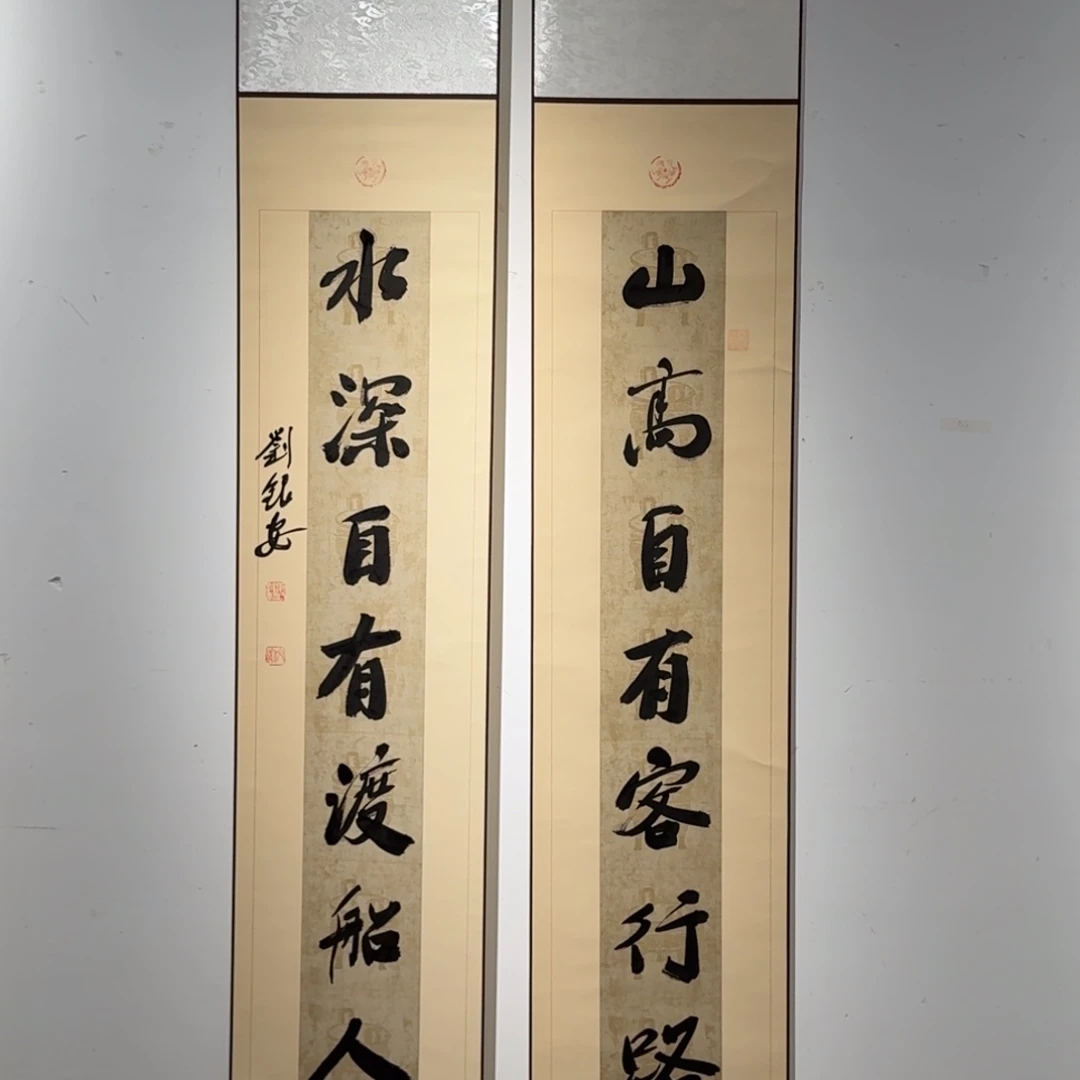 山高自有客行路
水深自有渡船人
劉銀安